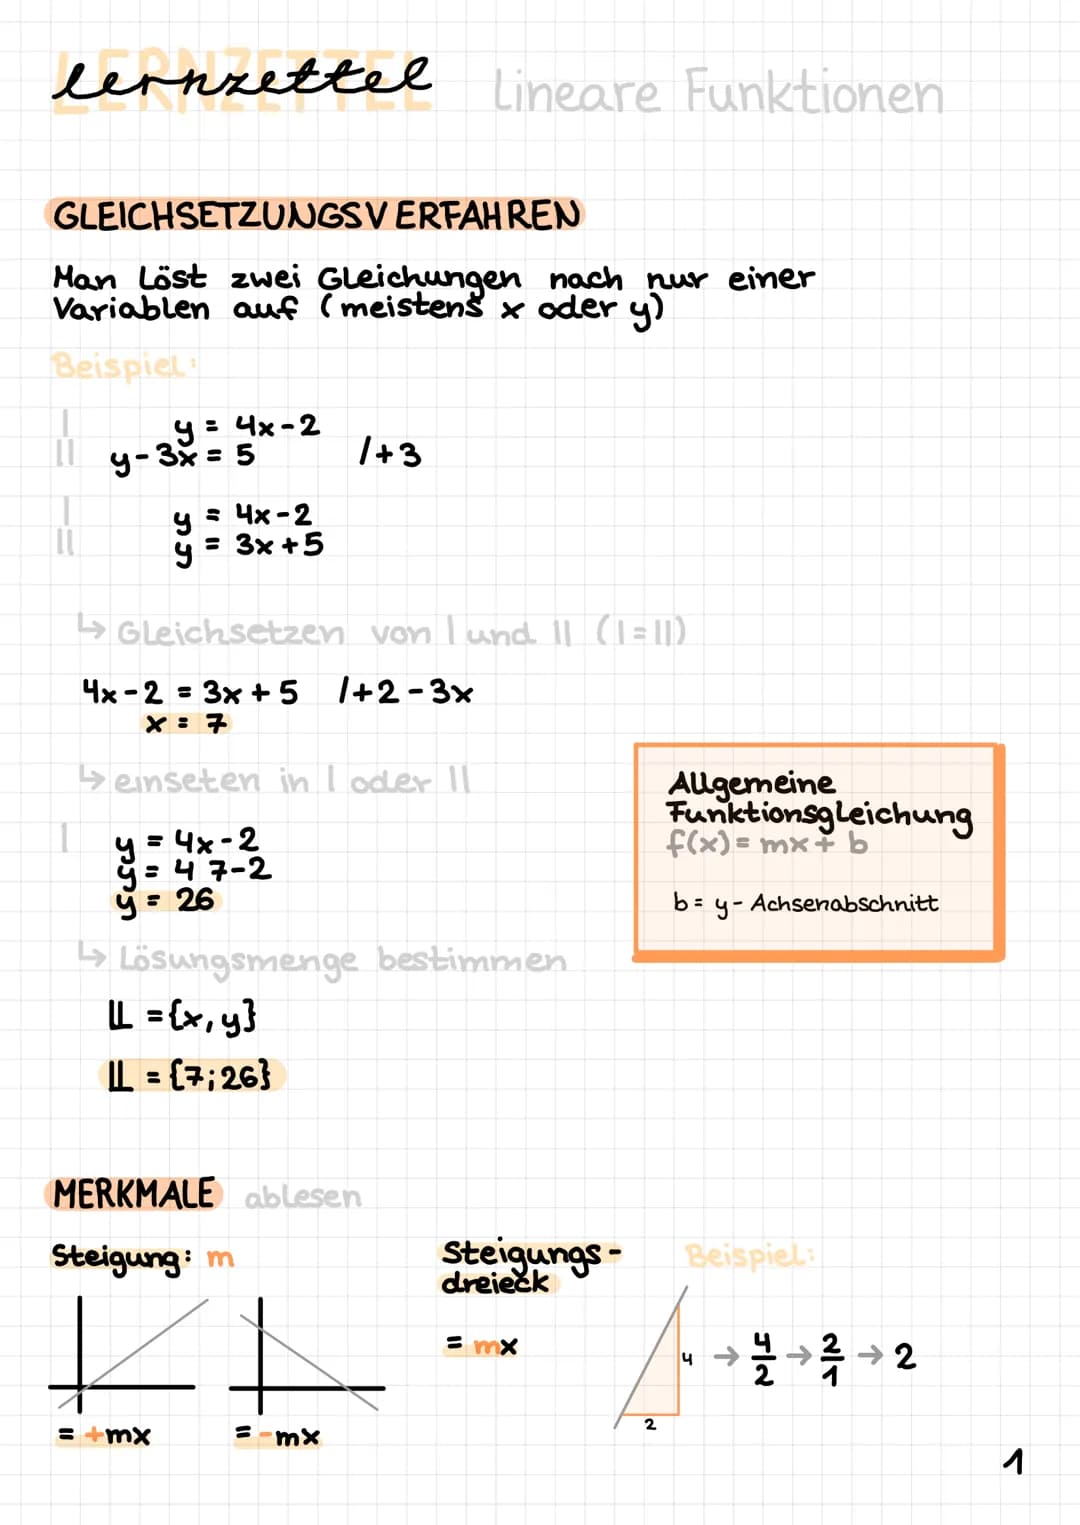 lernzettel Lineare Funktionen
GLEICHSETZUNGSVERFAHREN
Man Löst zwei Gleichungen nach nur einer
Variablen auf (meistens x oder y)
Beispiel:
I y = 4x-2
II y-3x = 5 /+3
I y = 4x-2
II y = 3x+5
↳ Gleichsetzen von I und II (I=II)
4x-2 = 3x+5 /+2-3x
x = 7
↳ einseten in I oder II
I y = 4x-2
y = 4 7-2
y = 26
Allgemeine
Funktionsgleichung
f(x)= mx+ b
b= y- Achsenabschnitt
↳ Lösungsmenge bestimmen
𝕃 ={x, y}
𝕃 ={7;26}
MERKMALE ablesen
Steigung: m
= +mx
= -mx
Steigungs-
dreieck
= mx
Beispiel:
4 → 4/2 → 2/1 → 2
2
1